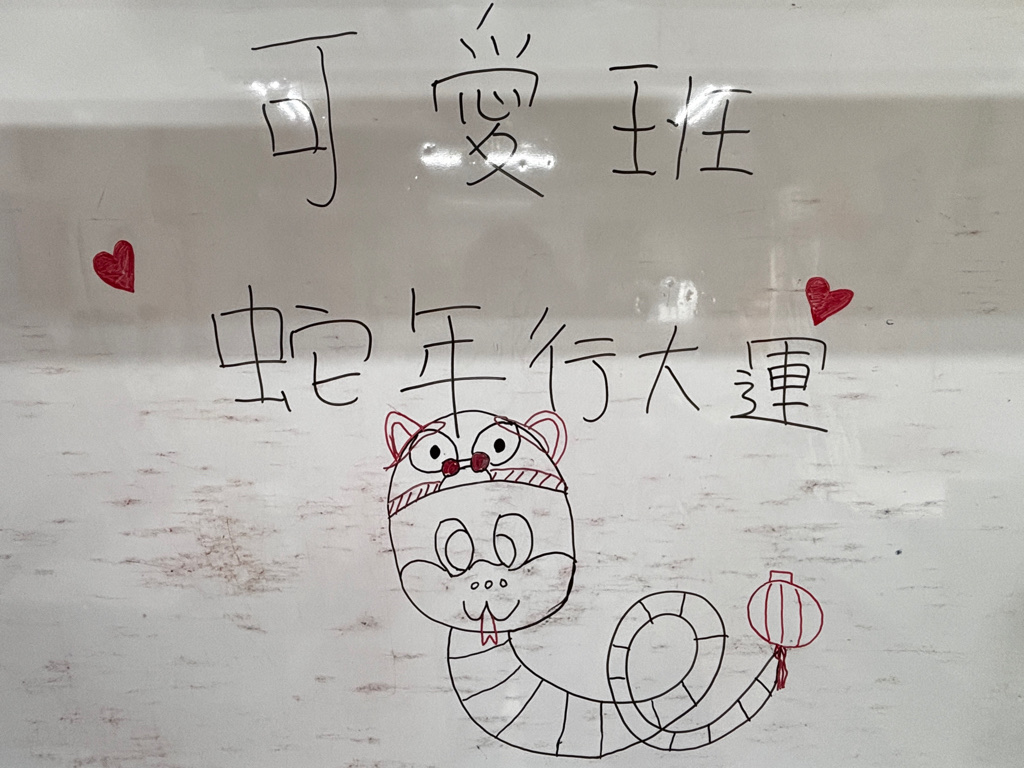 可愛班
蛇年行大運